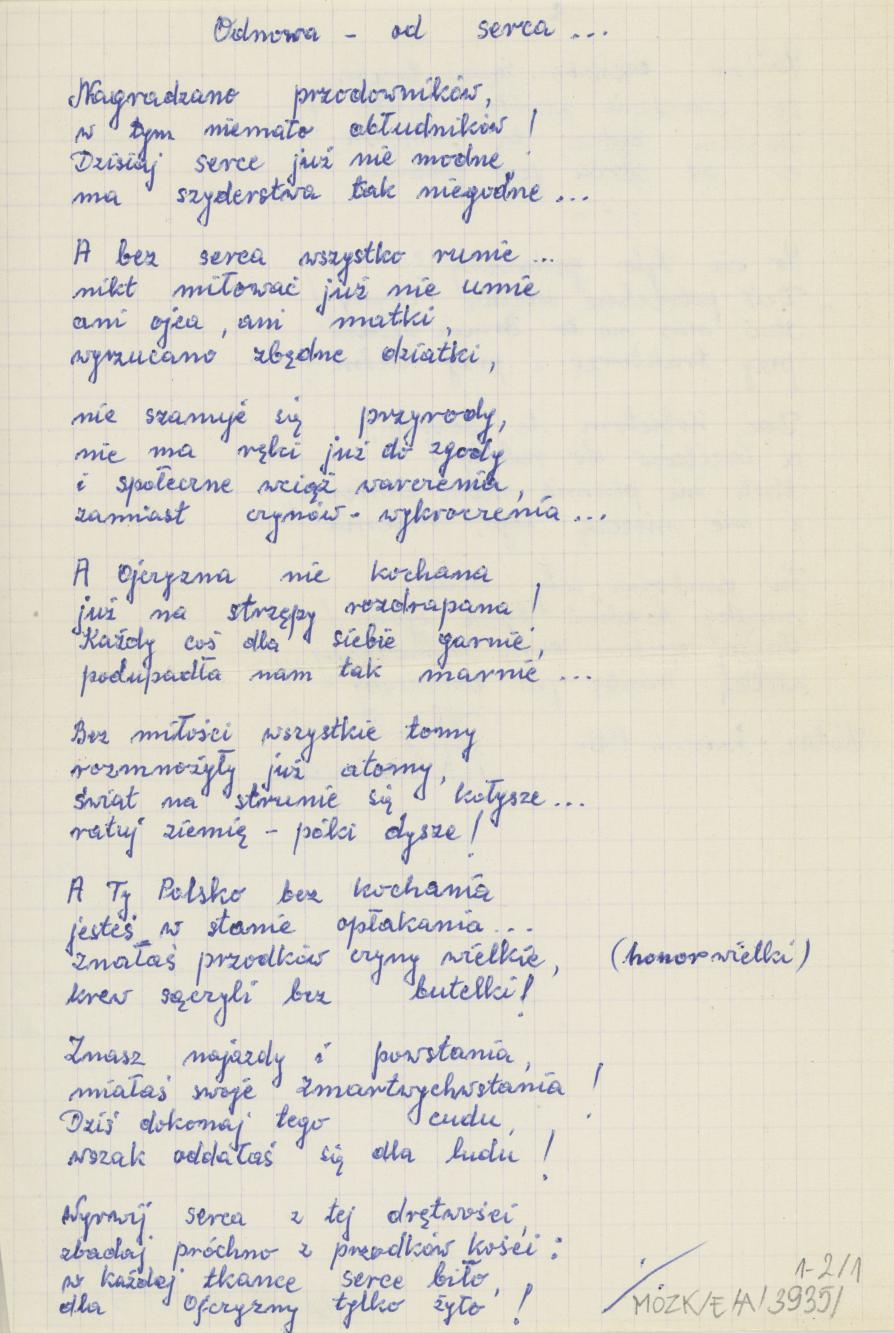 Odnowa - od serca ...
Nagradzano przodowników,
w tym niemało obłudników!
Dzisiaj serce już nie modne,
ma szyderstwa tak niegodne ...
A bez serca wszystko runie ...
nikt miłować już nie umie
ani ojca, ani matki,
wyrzucano zbędne dziatki,
nie szanuje się przyrody,
nie ma ręki już do zgody
i społeczne wciąż warczenia,
zamiast czynów - wykroczenia ...
A Ojczyzna nie kochana
już na strzępy rozdrapana!
Każdy coś dla siebie garnie,
podupadła nam tak marnie ...
Bez miłości wszystkie tomy
rozmnożyły już atomy,
świat na strunie się kołysze ...
ratuj ziemię - póki dysze!
A Ty Polsko bez kochania
jesteś w stanie opłakania ...
znałaś przodków czyny wielkie, (honor wielki)
krew sączyli bez butelki!
Znasz najazdy i powstania,
miałaś swoje Zmartwychwstania!
Dziś dokonaj tego cudu,
wszak oddałaś się dla ludu!
Wyrwij serca z tej drętwości,
zbadaj próchno z przodków kości:
w każdej tkance serce biło,
dla Ojczyzny tylko żyło!
1-2/1
MÓZK/E/A/3935/